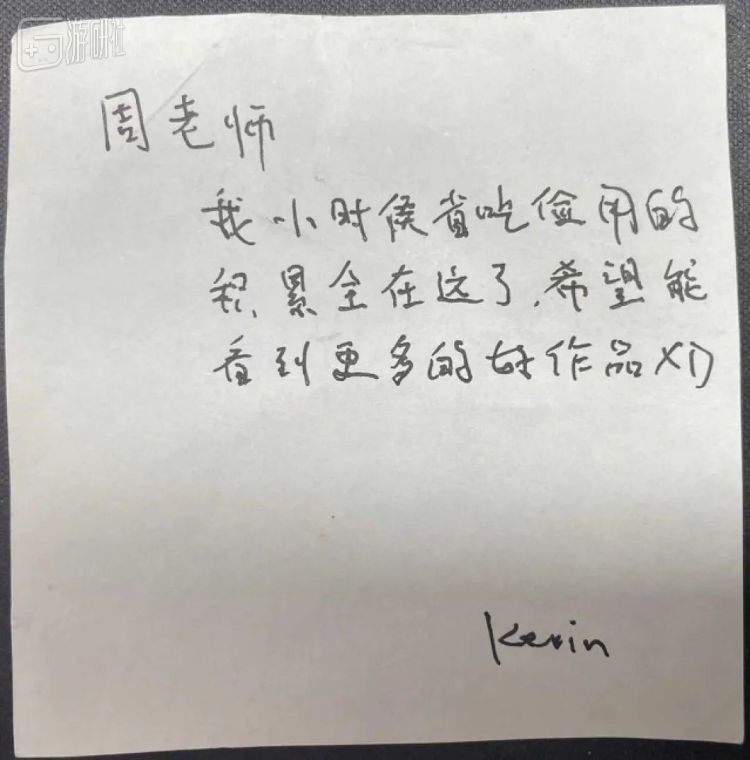 游研社
周老师
我小时候省吃俭用的
积累全在这了,希望能
看到更多的好作品XD
Kevin